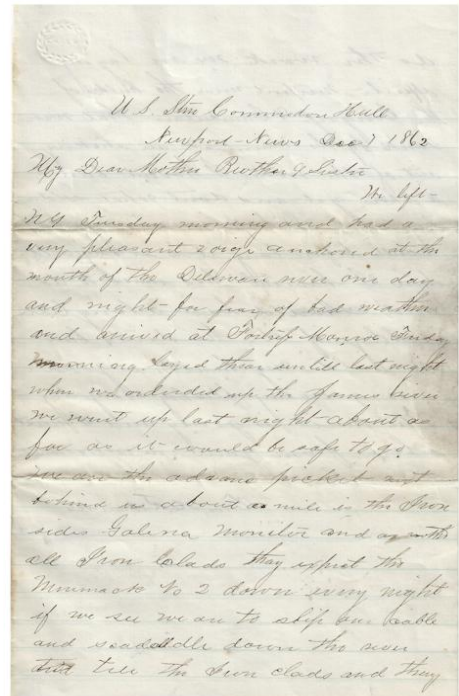 U.S. Stm Commodore Hull
Newport-News Dec 7 1862
My Dear Mother Brother & Sister
We left-
NY Tuesday morning and had a
very pleasant voige anchored at the
mouth of the Delaware river one day
and night-for fear of bad weather
and arrived at Fortress Monroe Friday
morning layed there untill last night
when we orderded up the James river
we went up last night about as
far as it would be safe to go
we are the advance picket just
behind us about a mile is the Iron
sides Galena Monitor and
all Iron Clads they expect the
Merrimack No 2 down every night
if we see we are to slip our cable
and scadaddle down the river
till the Iron clads and they